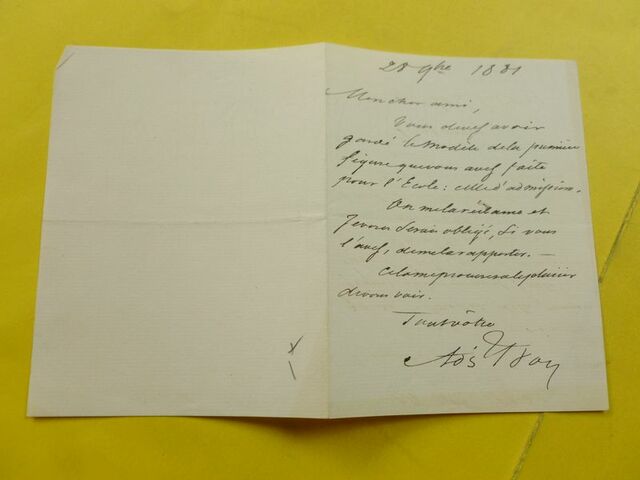 28 9bre 1881
Mon cher ami,
Vous devez avoir
gardé le modèle de la première
figure que vous avez faite
pour l'Ecole: celle d'admission.
On me la réclame et
je vous serais obligé, si vous
l'avez, de me la rapporter. —
Cela me procurera le plaisir
de vous voir.
Tout vôtre